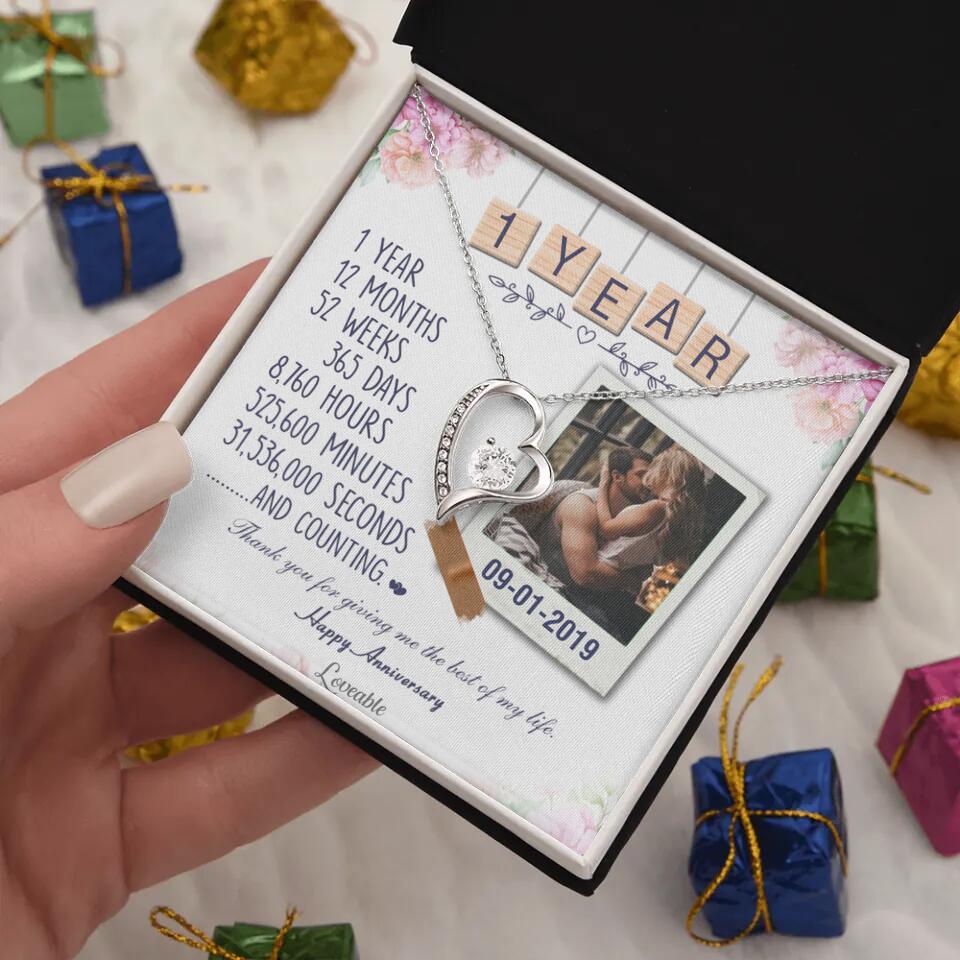 1 YEAR
1 YEAR
12 MONTHS
52 WEEKS
365 DAYS
8,760 HOURS
525,600 MINUTES
31,536,000 SECONDS
..........AND COUNTING.
09-01-2019
Thank you for giving me the best of my life.
Happy Anniversary
Loveable